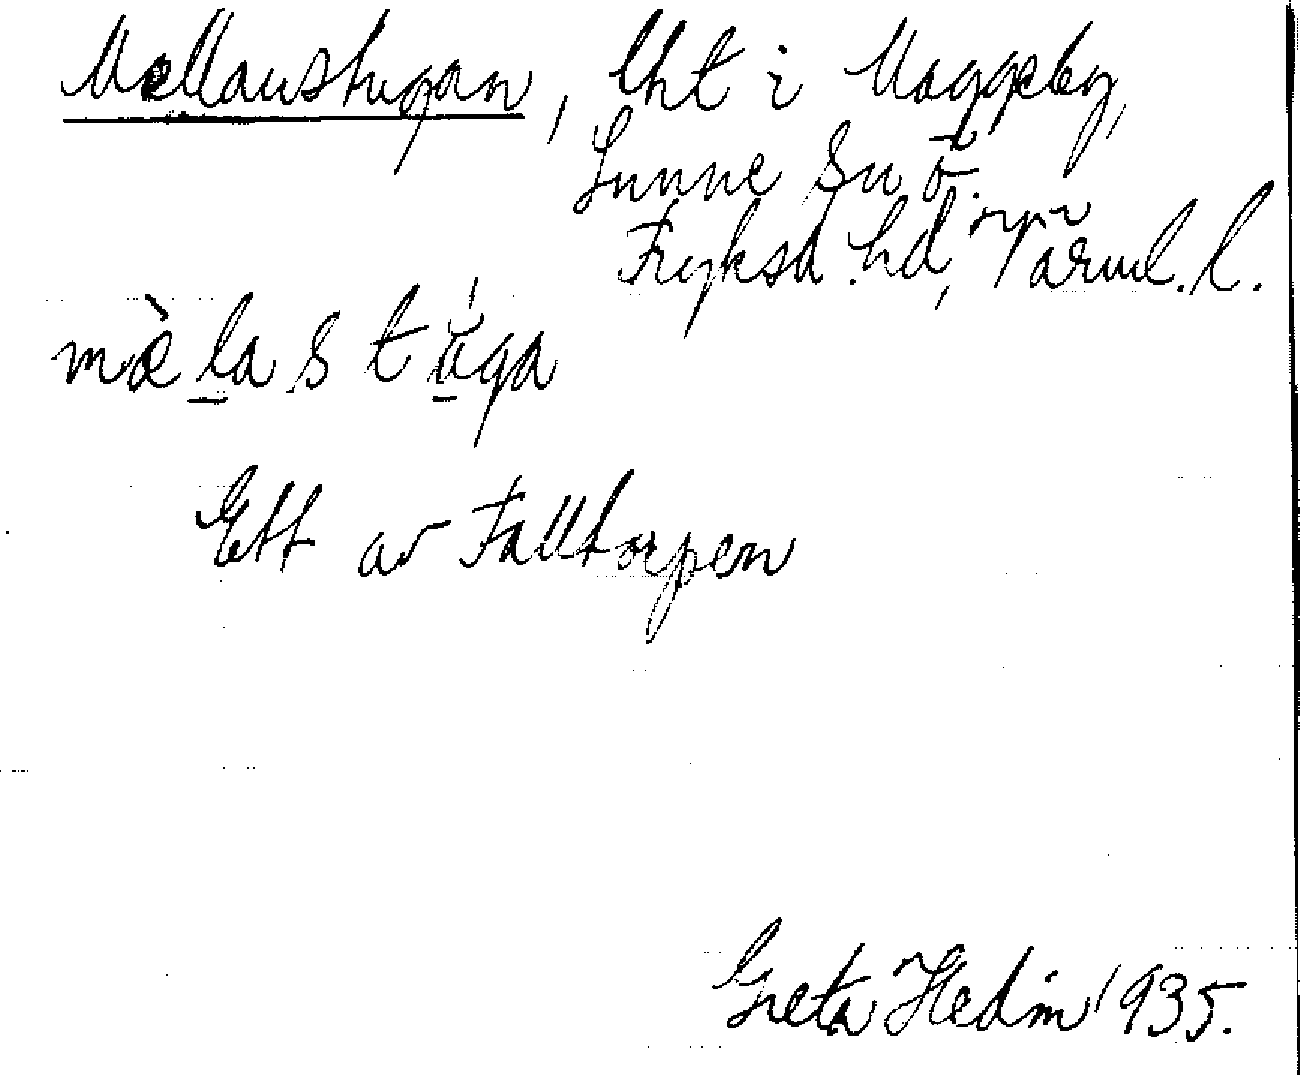 Mellanstugan, lht i Maggeby,
Sunne Sn Ö.
Fryksd. hd, Värml. l.
mæ̀lastúga
Ett av Falltorpen
Greta Hedin 1935.